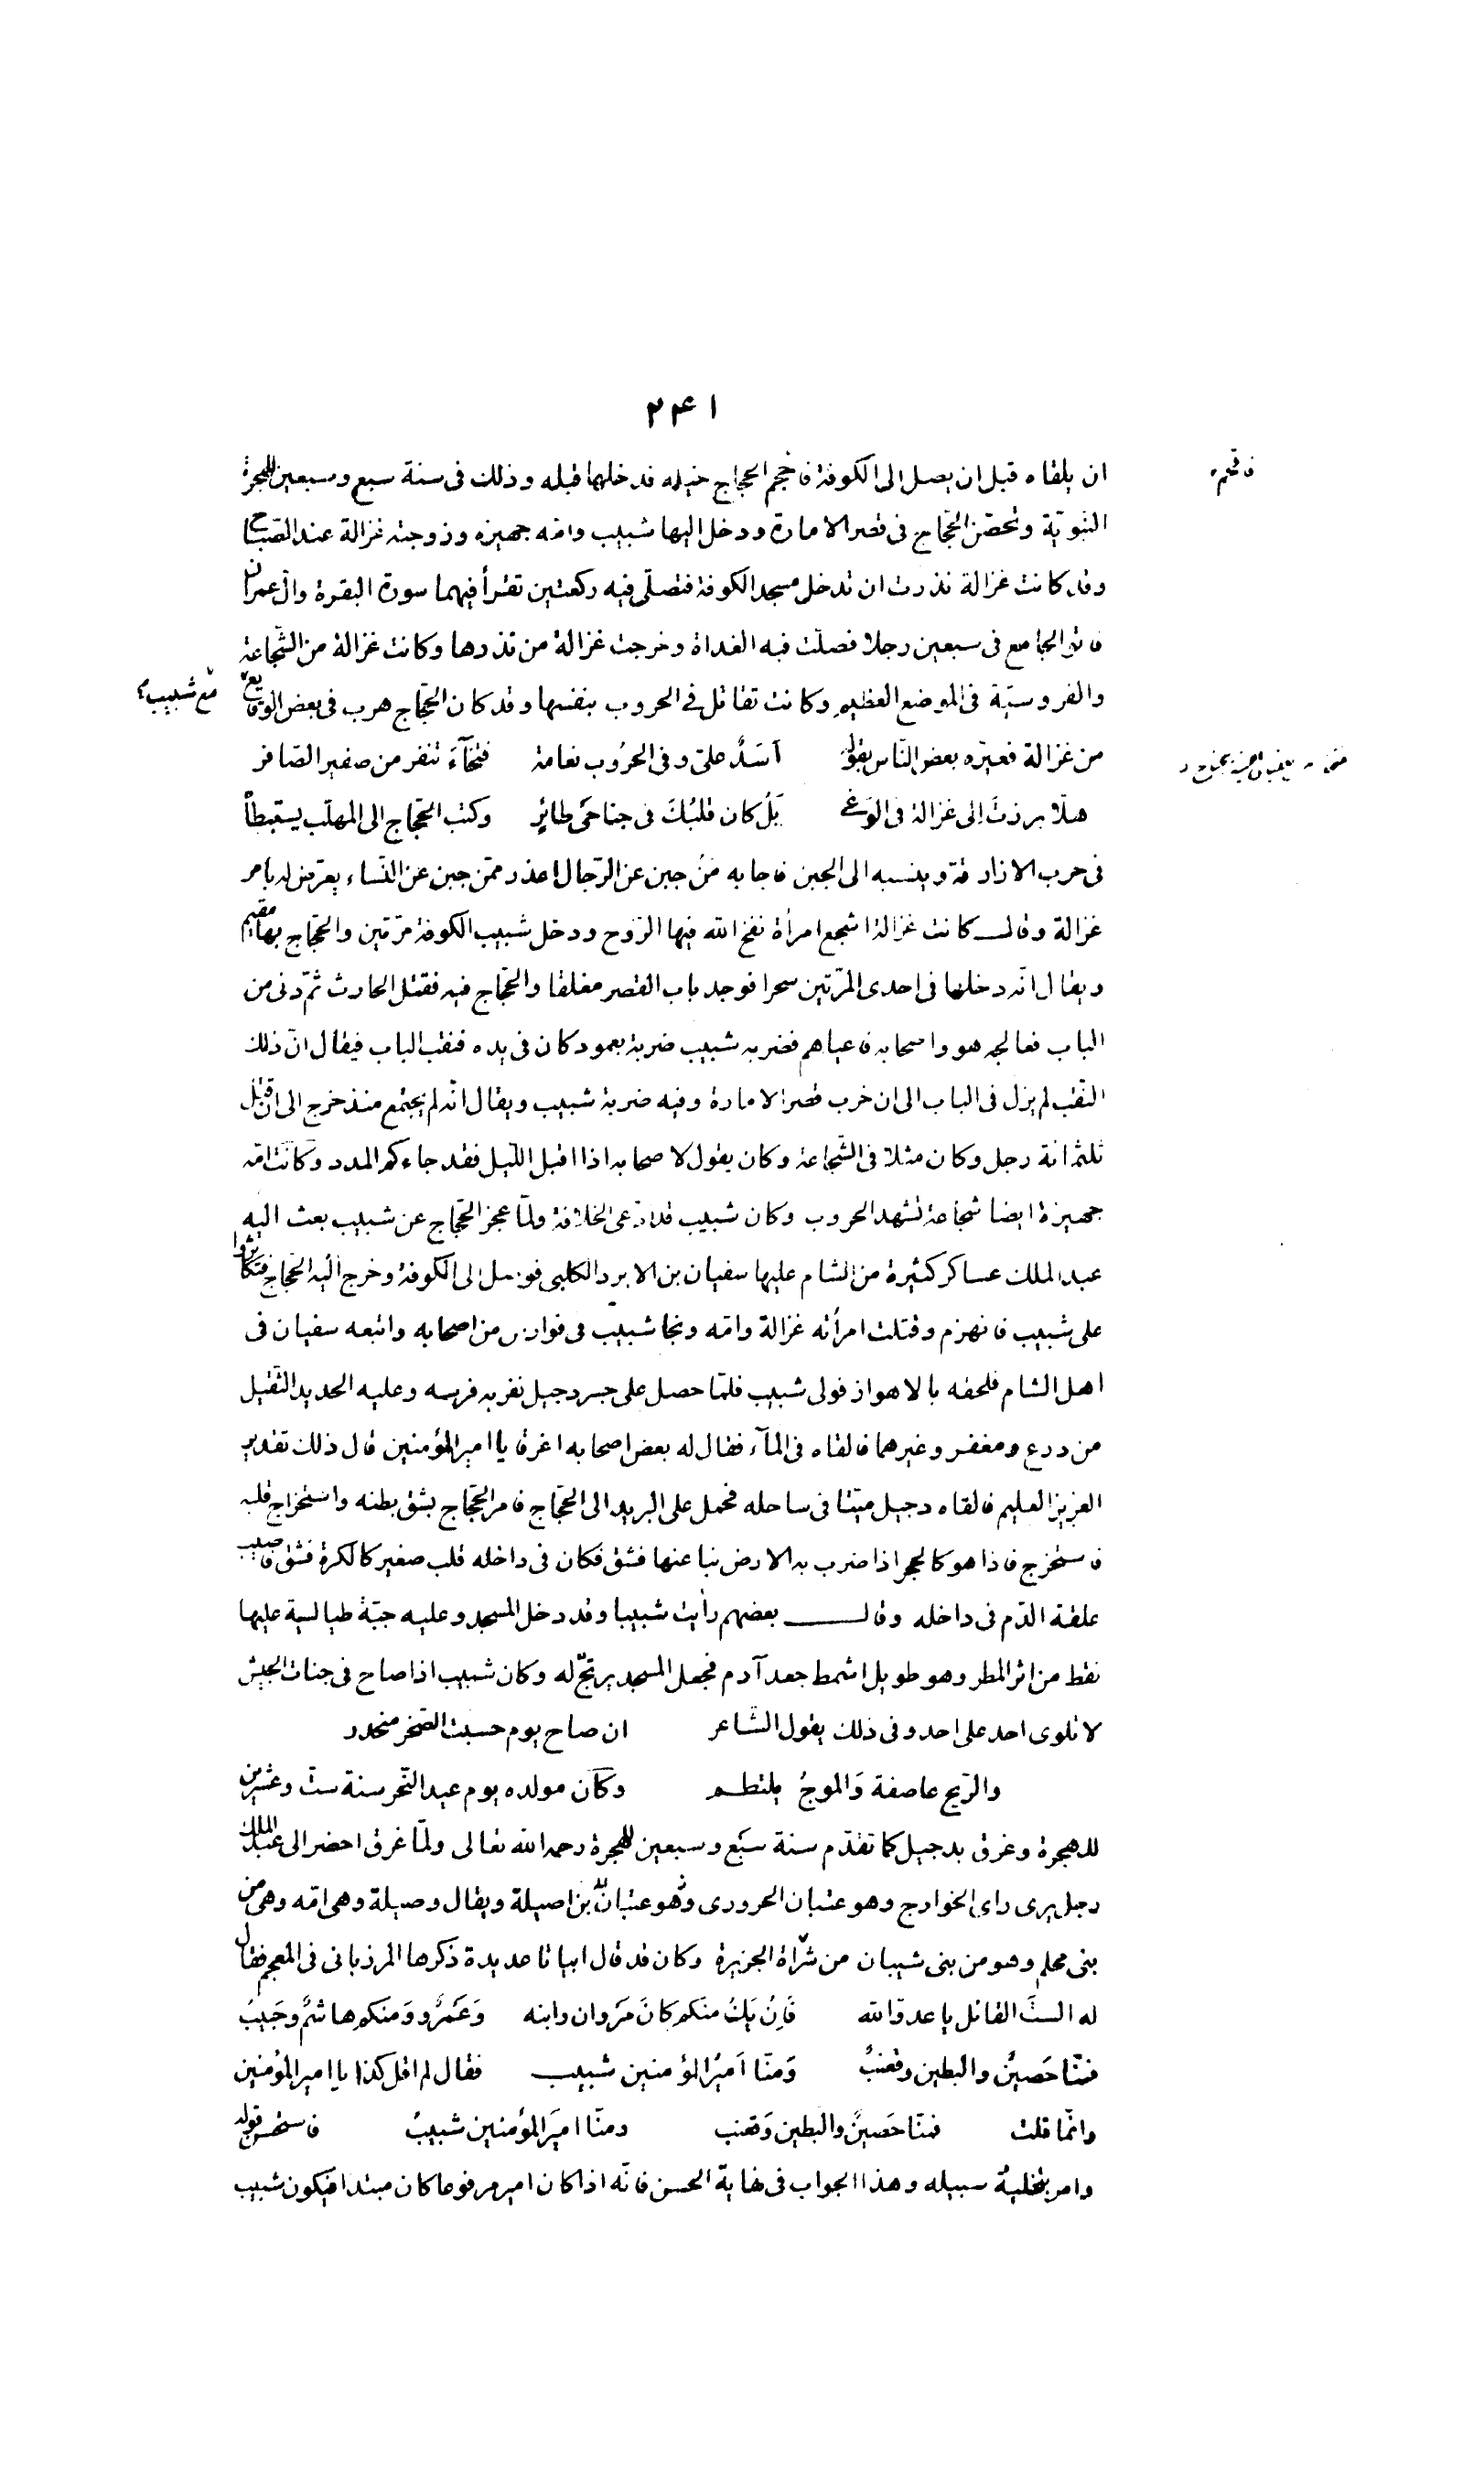 ٢٤١
ان يلقاه قبل ان يصل الى الكوفة فاقحم الحجاج خيله فدخلها قبله وذلك فى سنة سبع وسبعين للهجرة
فاقحم
النبويّة وتحصّن الحجّاج فى قصر الامارة ودخل اليها شبيب وامّه جهيزة وزوجته غزالة عند الصّباح
وقد كانت غزالة نذرت ان تدخل مسجد الكوفة فتصلّى فيه ركعتين تقرأ فيهما سورة البقرة وآل عمران
فاتوا الجامع فى سبعين رجلا فصلّت فيه الغداة وخرجت غزالة من نذرها وكانت غزالة من الشّجاعة
والفروسيّة فى الموضع العظيم وكانت تقاتل فى الحروب بنفسها وقد كان الحجّاج هرب فى بعض الوقايع
مع شبيب
من غزالة فعيّره بعض النّاس بقوله اَسَدٌ علىّ وفى الحرُوب نعامة فتخآءَ تنفر من صفير الصّافر
هلّا برزتَ اِلى غزالة فى الوَغى بَلْ كان قلبُكَ فى جناحَى طائرٍ وكتب الحجّاج الى المهلّب يستبطأ
فى حرب الازارقة وينسبه الى الجبن فاجابه مَنْ جبن عن الرّجال اعذر ممّن جبن عن النّساء يعرّض له بامر
غزالة وقال كانت غزالة اشجع امرأة نفخ الله فيها الرّوح ودخل شبيب الكوفة مرّتين والحجّاج بها مقيم
ويقال انّه دخلها فى احدى المرّتين سحرا فوجد باب القصر مغلقا والحجّاج فيه فقتل الحارث ثمّ دنى من
الباب فعالجه هو واصحابه فاعياهم فضربه شبيب ضربة بعمود كان فى يده فنقب الباب فيقال انّ ذلك
النّقب لم يزل فى الباب الى ان خرب قصر الامارة وفيه ضربة شبيب ويقال انّه لم يجتمع منذ خرج الى ان قتل
ثلثمائة رجل وكان مثلا فى الشّجاعة وكان يقول لاصحابه اذا اقبل اللّيل فقد جاءكم المدد وكانت امّه
جهيزة ايضا شجاعة تشهد الحروب وكان شبيب قد ادّعى الخلافة ولمّا عجز الحجّاج عن شبيب بعث اليه
عبد الملك عساكر كثيرة من الشام عليها سفيان بن الابرد الكلبى فوصل الى الكوفة وخرج اليه الحجّاج فتكاثروا
على شبيب فانهزم وقتلت امرأته غزالة وامّه ونجا شبيب فى فوارس من اصحابه واتبعه سفيان فى
اهل الشام فلحقه بالاهواز فولى شبيب فلمّا حصل على جسر دجيل نفر به فرسه وعليه الحديد الثّقيل
من درع ومغفر وغيرهما فالقاه فى المآء فقال له بعض اصحابه اغرقا يا امير المؤمنين قال ذلك تقدير
العزيز العليم فالقاه دجيل ميّتا فى ساحله فحمل على البريد الى الحجّاج فامر الحجّاج بشق بطنه واستخراج قلبه
فاستخرج فاذا هو كالحجر اذا ضرب به الارض نبا عنها فشق فكان فى داخله قلب صغير كالكرة فشق فاصيب
علقة الدّم فى داخله وقال بعضهم رأيت شبيبا وقد دخل المسجد وعليه جبّة طيالسية عليها
نقط من اثر المطر وهو طويل اشمط جعد آدم فجعل المسجد يرتجّ له وكان شبيب اذا صاح فى جنبات الجيش
لا تلوى احد على احد وفى ذلك يقول الشّاعر ان صاح يوم حسبت الصّخر منحدر
والرّيح عاصفة وَالموجُ يلتطم وكان مولده يوم عيد النّحر سنة ستّ وعشرين
للهجرة وغرق بدجيل كما تقدّم سنة سبَع وسبعين للهجرة رحمه الله تعالى ولمّا غرق احضر الى عبد الملك
رجل يرى راى الخوارج وهو عتبان الحرورى وهو عتبان بن اصيلة ويقال وصيلة وهى امّه وهى من
بنى محلم وهو من بنى شيبان من شراة الجزيرة وكان قد قال ابياتا عديدة ذكرها المرزبانى فى المعجم فقال
له الستَ القائل يا عدوّ الله فَاِنْ يَكُ منكم كانَ مَرَوان وابنه وَعَمرٌو وَمنكم هاشمٌ وحَبيبُ
فمنّا حَصينٌ والبطين وقعنبٌ وَمنّا اَميْرُ المؤمنين شبيب فقال لم اقل كذا يا امير المؤمنين
وانّما قلت فمنّا حَصينٌ والبطين وَقعنب ومنّا اميَر المؤمنين شبيبُ فاستحسن قوله
وامر بتخلية سبيله وهذا الجواب فى نهاية الحسن فانّه اذا كان امير مرفوعا كان مبتدا فيكون شبيب